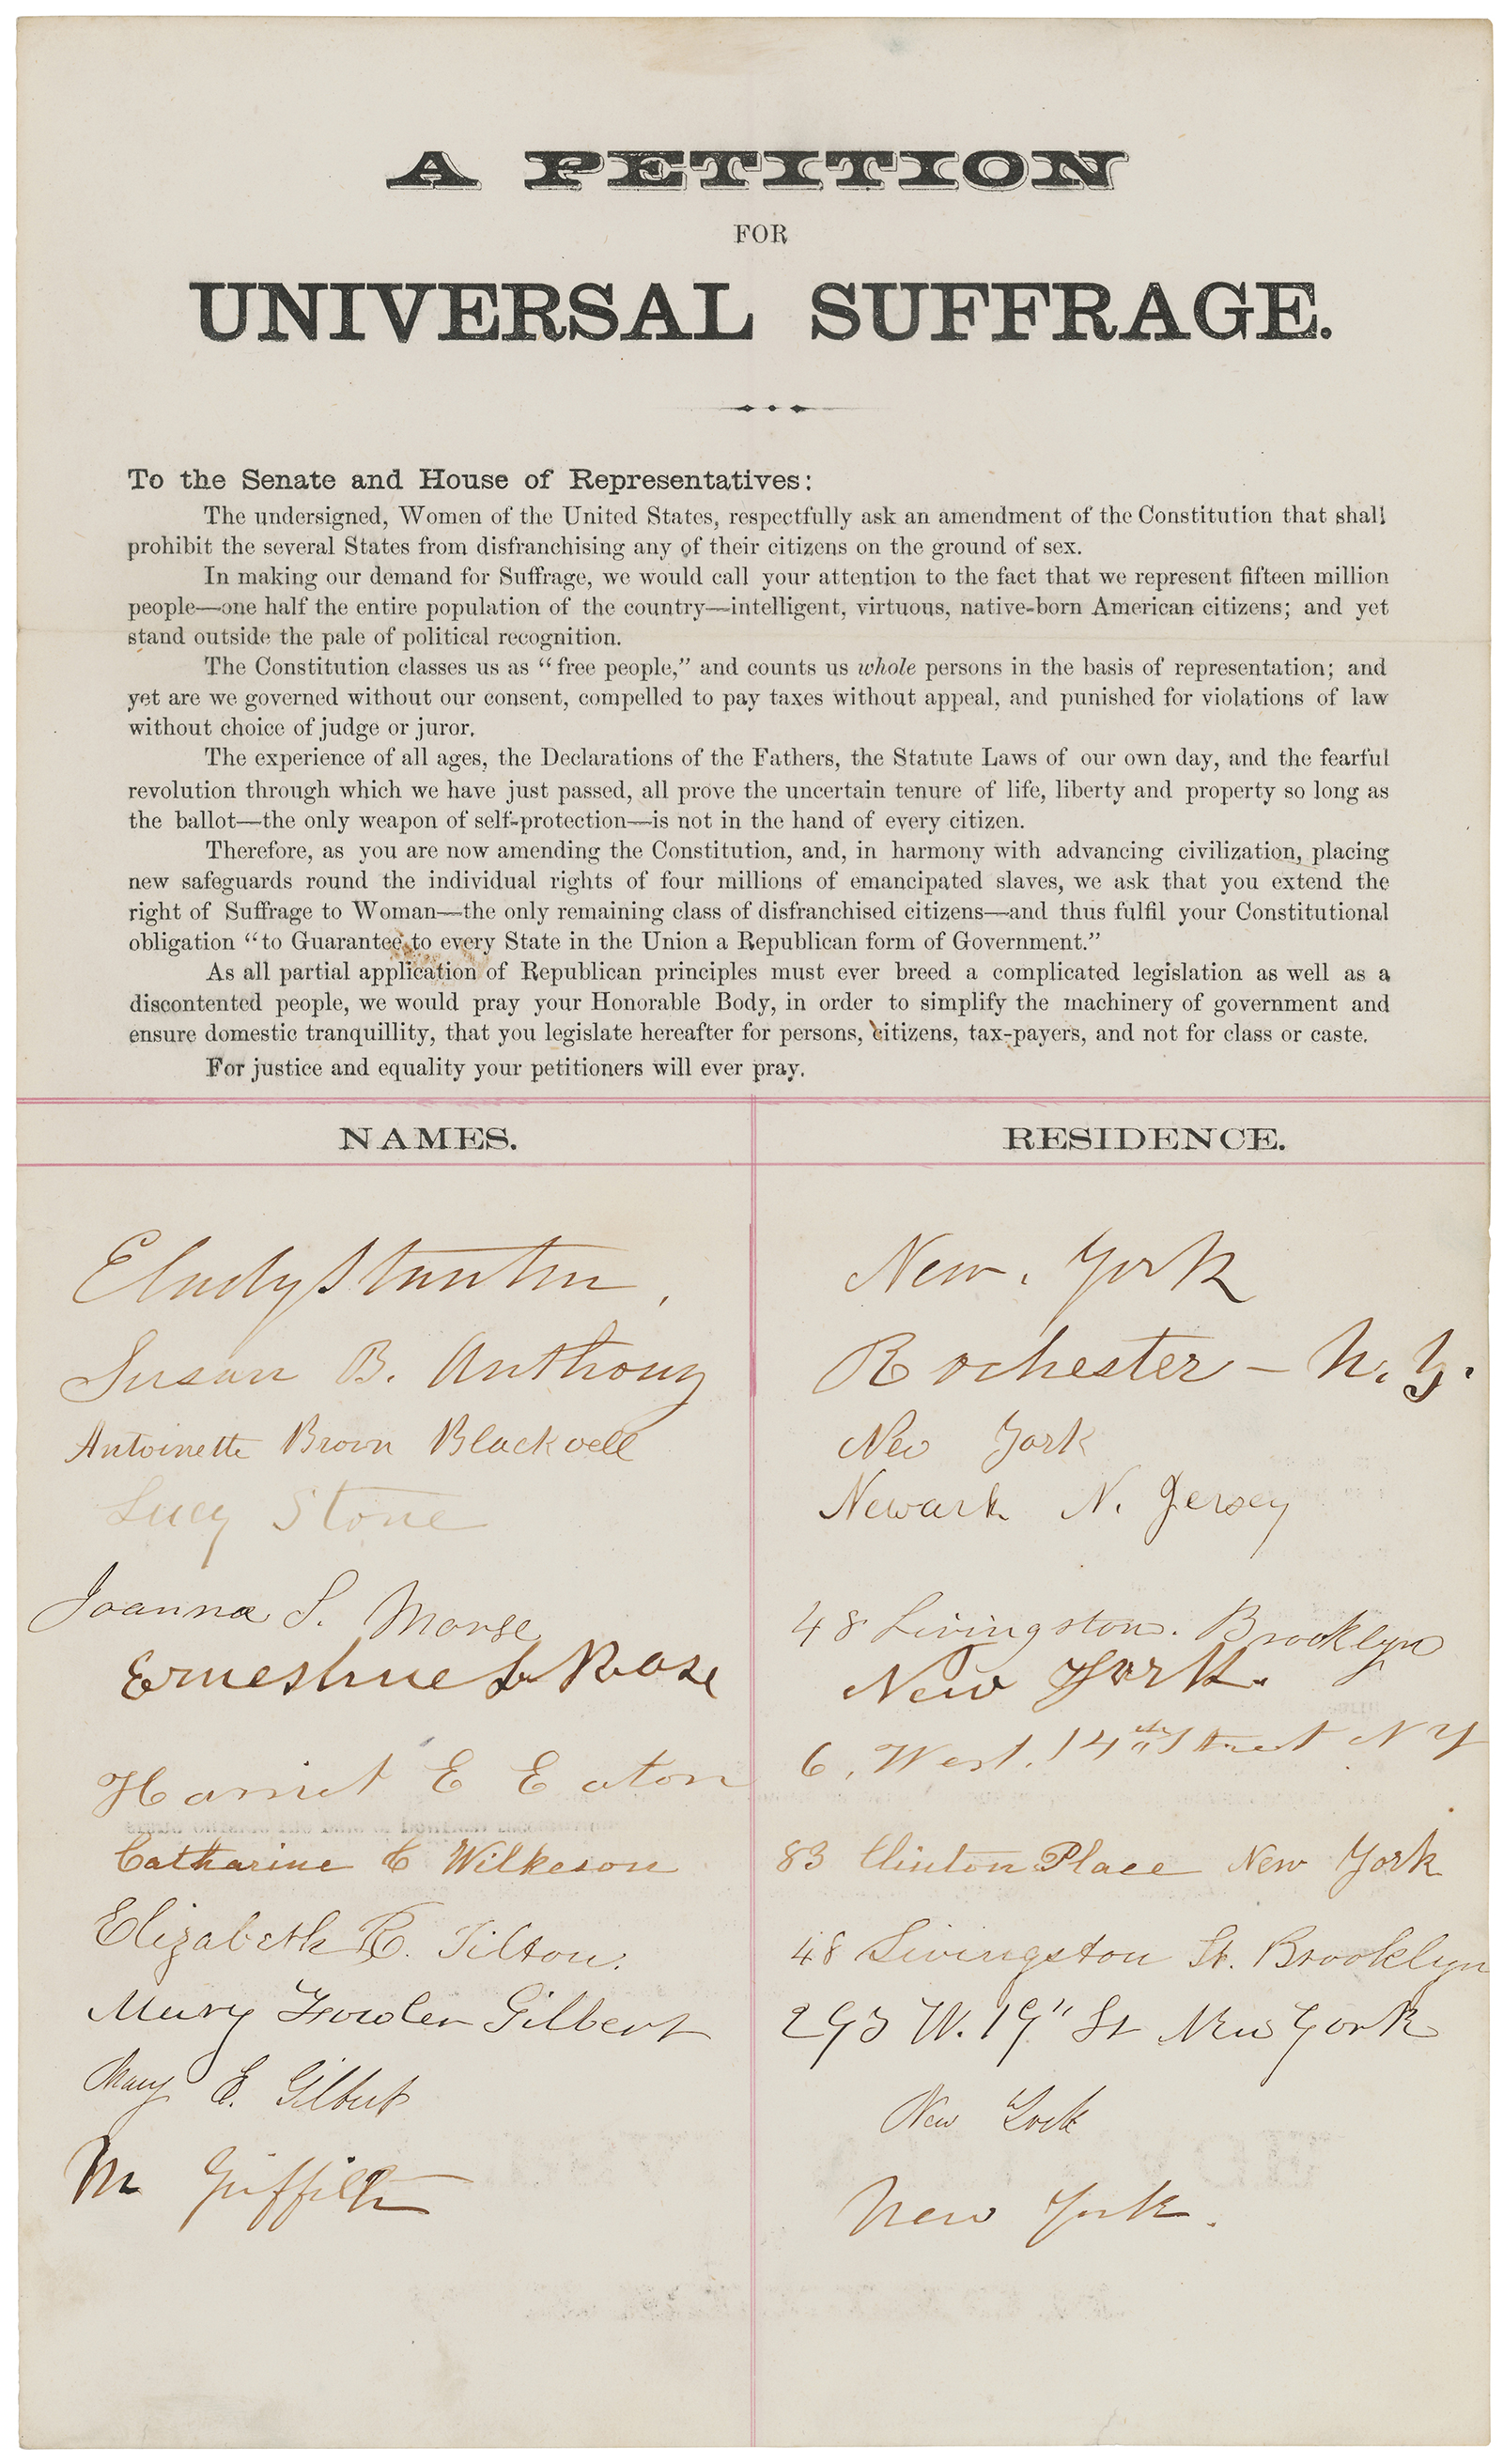 A PETITION
FOR
UNIVERSAL SUFFRAGE.
To the Senate and House of Representatives:
The undersigned, Women of the United States, respectfully ask an amendment of the Constitution that shall
prohibit the several States from disfranchising any of their citizens on the ground of sex.
In making our demand for Suffrage, we would call your attention to the fact that we represent fifteen million
people—one half the entire population of the country—intelligent, virtuous, native-born American citizens; and yet
stand outside the pale of political recognition.
The Constitution classes us as “free people,” and counts us whole persons in the basis of representation; and
yet are we governed without our consent, compelled to pay taxes without appeal, and punished for violations of law
without choice of judge or juror.
The experience of all ages, the Declarations of the Fathers, the Statute Laws of our own day, and the fearful
revolution through which we have just passed, all prove the uncertain tenure of life, liberty and property so long as
the ballot—the only weapon of self-protection—is not in the hand of every citizen.
Therefore, as you are now amending the Constitution, and, in harmony with advancing civilization, placing
new safeguards round the individual rights of four millions of emancipated slaves, we ask that you extend the
right of Suffrage to Woman—the only remaining class of disfranchised citizens—and thus fulfil your Constitutional
obligation “to Guarantee to every State in the Union a Republican form of Government.”
As all partial application of Republican principles must ever breed a complicated legislation as well as a
discontented people, we would pray your Honorable Body, in order to simplify the machinery of government and
ensure domestic tranquillity, that you legislate hereafter for persons, citizens, tax-payers, and not for class or caste.
For justice and equality your petitioners will ever pray.
NAMES. RESIDENCE.
ECadyStanton, New. York
Susan B. Anthony Rochester – N. Y.
Antoinette Brown Blackwell New York
Lucy Stone Newark N. Jersey
Joanna S. Morse 48 Livingston. Brooklyn
Ernestine L Rose New York.
Harriet E Eaton 6. West. 14th Street N Y
Catharine C Wilkeson 83 Clinton Place New York
Elizabeth R. Tilton. 48 Livingston St. Brooklyn
Mary Fowler Gilbert 293 W. 19" St New York
Mary E. Gilbert New York
M Griffith New York.